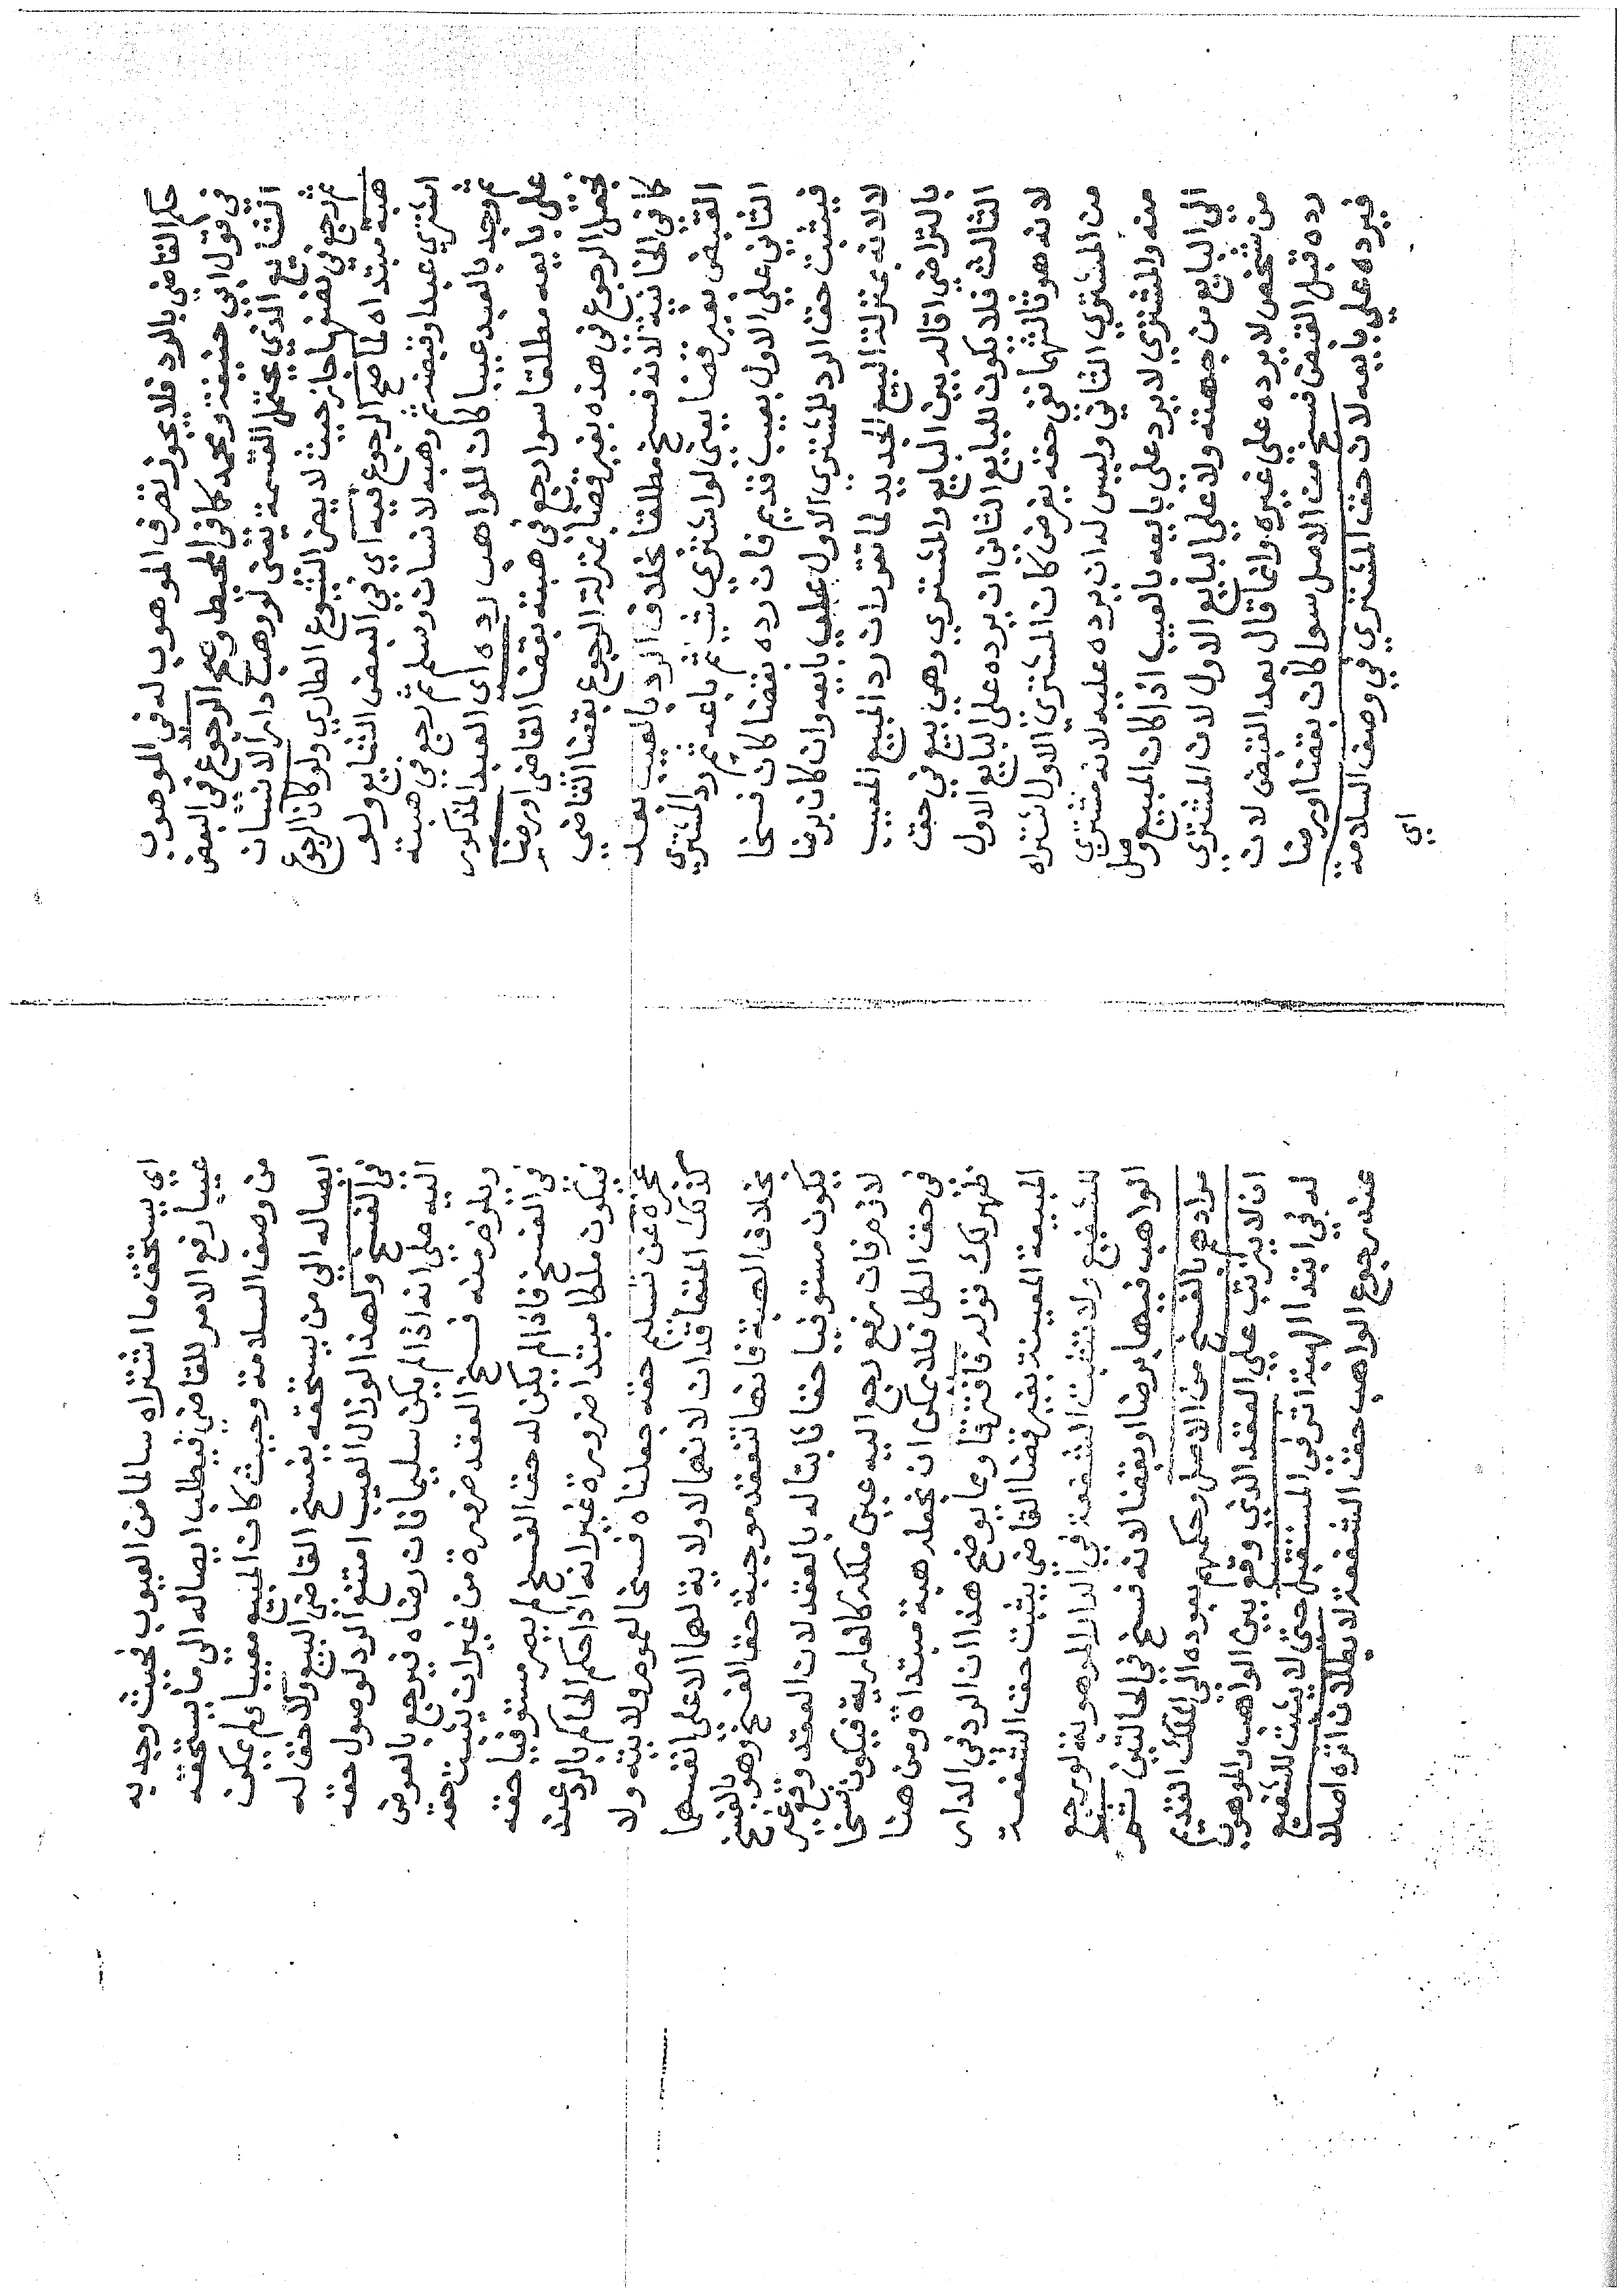 حكم القاضي بالرد فلا يجوز تصرف الموهوب له في الموهوب
في قول ابي حنيفة ومحمد كما في المحيط وصح الرجوع في البعض
الشايع الذي يحتمل القسمة يعني لو وهب دارا لانسان
ثم رجع في نصفها جاز حيث لا يضر الشيوع الطاري ولو كان الرجوع
هبة مبتداه لما صح الرجوع فيه اي في البعض الشايع ولو
اشتري عبدا وقبضه ثم وهبه لانسان وسلم ثم رجع في هبته
ثم وجد بالعبد عيبا كان للواهب رده اي العبد المذكور
علي بايعه مطلقا سوا رجع في هبته بقضا القاضي او برضا
فجعل الرجوع في هذه بغير قضا بمنزلة الرجوع بقضا القاضي
كما في الخانية لانه فسخ مطلقا بخلاف الرد بالعيب بعد
القبض بغير قضا يعني لو اشتري شيا ثم باعه ثم رد المشتري
الثاني علي الاول بعيب قديم فان رده بقضا كان فسخا
فيثبت حق الرد للمشتري الاول علي بايعه وان كان برضا
لا لانه بمنزلة البيع الجديد لما تقرر ان رد المبيع المعيب
بالتراضي اقاله بين البايع والمشتري وهي بيع في حق
الثالث فلا يكون للبايع الثاني ان يرده علي البايع الاول
لانه هو ثالثهما نفي حقه بفرض كان المشتري الاول اشتراه
من المشتري الثاني وليس له ان يرده عليه لانه مشتري
منه والمشتري لا يرد علي بايعه بالعيب اذا كان المبيع وصل
الي البايع من جهته ولا علي البايع الاول لان المشتري
من شخص لا يرده علي غيره وانما قال بعد القبض لان
رده قبل القبض فسخ من الاصل سوا كان بقضا او برضا
فيرده علي بايعه لان حق المشتري في وصف السلامة
اي
اي يستحق ما اشتراه سالما من العيوب فحيث وجد به
عيبا رفع الامر للقاضي فيطلب ايصاله الي ما يستحقه
من وصف السلامة وحيث كان المبيع معيبا ولم يمكن
ايصاله الي من يستحقه يفسخ القاضي البيع ولا حق له
في الفسخ ولهذا لو زال العيب امتنع الرد لوصول حقه
اليه علي انه اذا لم يكن سليما فان رضاه فيرجع بالعوض
ويلزم منه فسخ العقد ضرورة من غير ان يثبت حقه
في الفسخ فاذا لم يكن له حق الفسخ لم يصر مستوفيا حقه
فيكون ملكا مبتدا ضرورة غير انه اذا حكم الحاكم بالرد عند
عجزه عن تسليم حقه جعلناه فسخا لعموم ولايته ولا
كذلك المتعاقدان لانهما لا ولاية لهما الا علي انفسهما
بخلاف الهبة فانها تنعقد موجبة حق الفسخ وهو بالفسخ
يكون مستوفيا حقا ثابتا له بالعقد لان العقد وقع غير
لازم فان رفع رجع اليه عين ملكه كالعارية فيكون فسخا
في حق الكل فلا يمكن ان نجعله هبة مبتداة ومن هنا
ظهر لك قوله فافترقا ومما يوضح هذا ان الرد في الدار
المبيعة المعينة بغير قضا القاضي يثبت حق الشفعة
للشفيع ولا تثبت الشفعة في الدار الموهوبة لو رجع
الواهب فيها برضا او بقضا لانه فسخ في الحالتين ثم
مرادهم بالفسخ من الاصل وحكمهم بعوده الي الملك القديم
ان لا يترتب علي العقد الذي وقع بين الواهب والموهوب
له في ابتدا الهبة اثر في المستقبل حتي لا يثبت للشفيع
عند رجوع الواهب حق الشفعة لا بطلان اثره اصلا